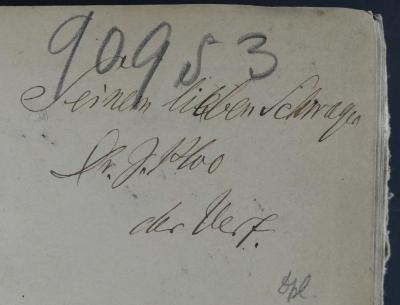 90953
Seinem lieben Schwager
Dr. J.
der Verf.